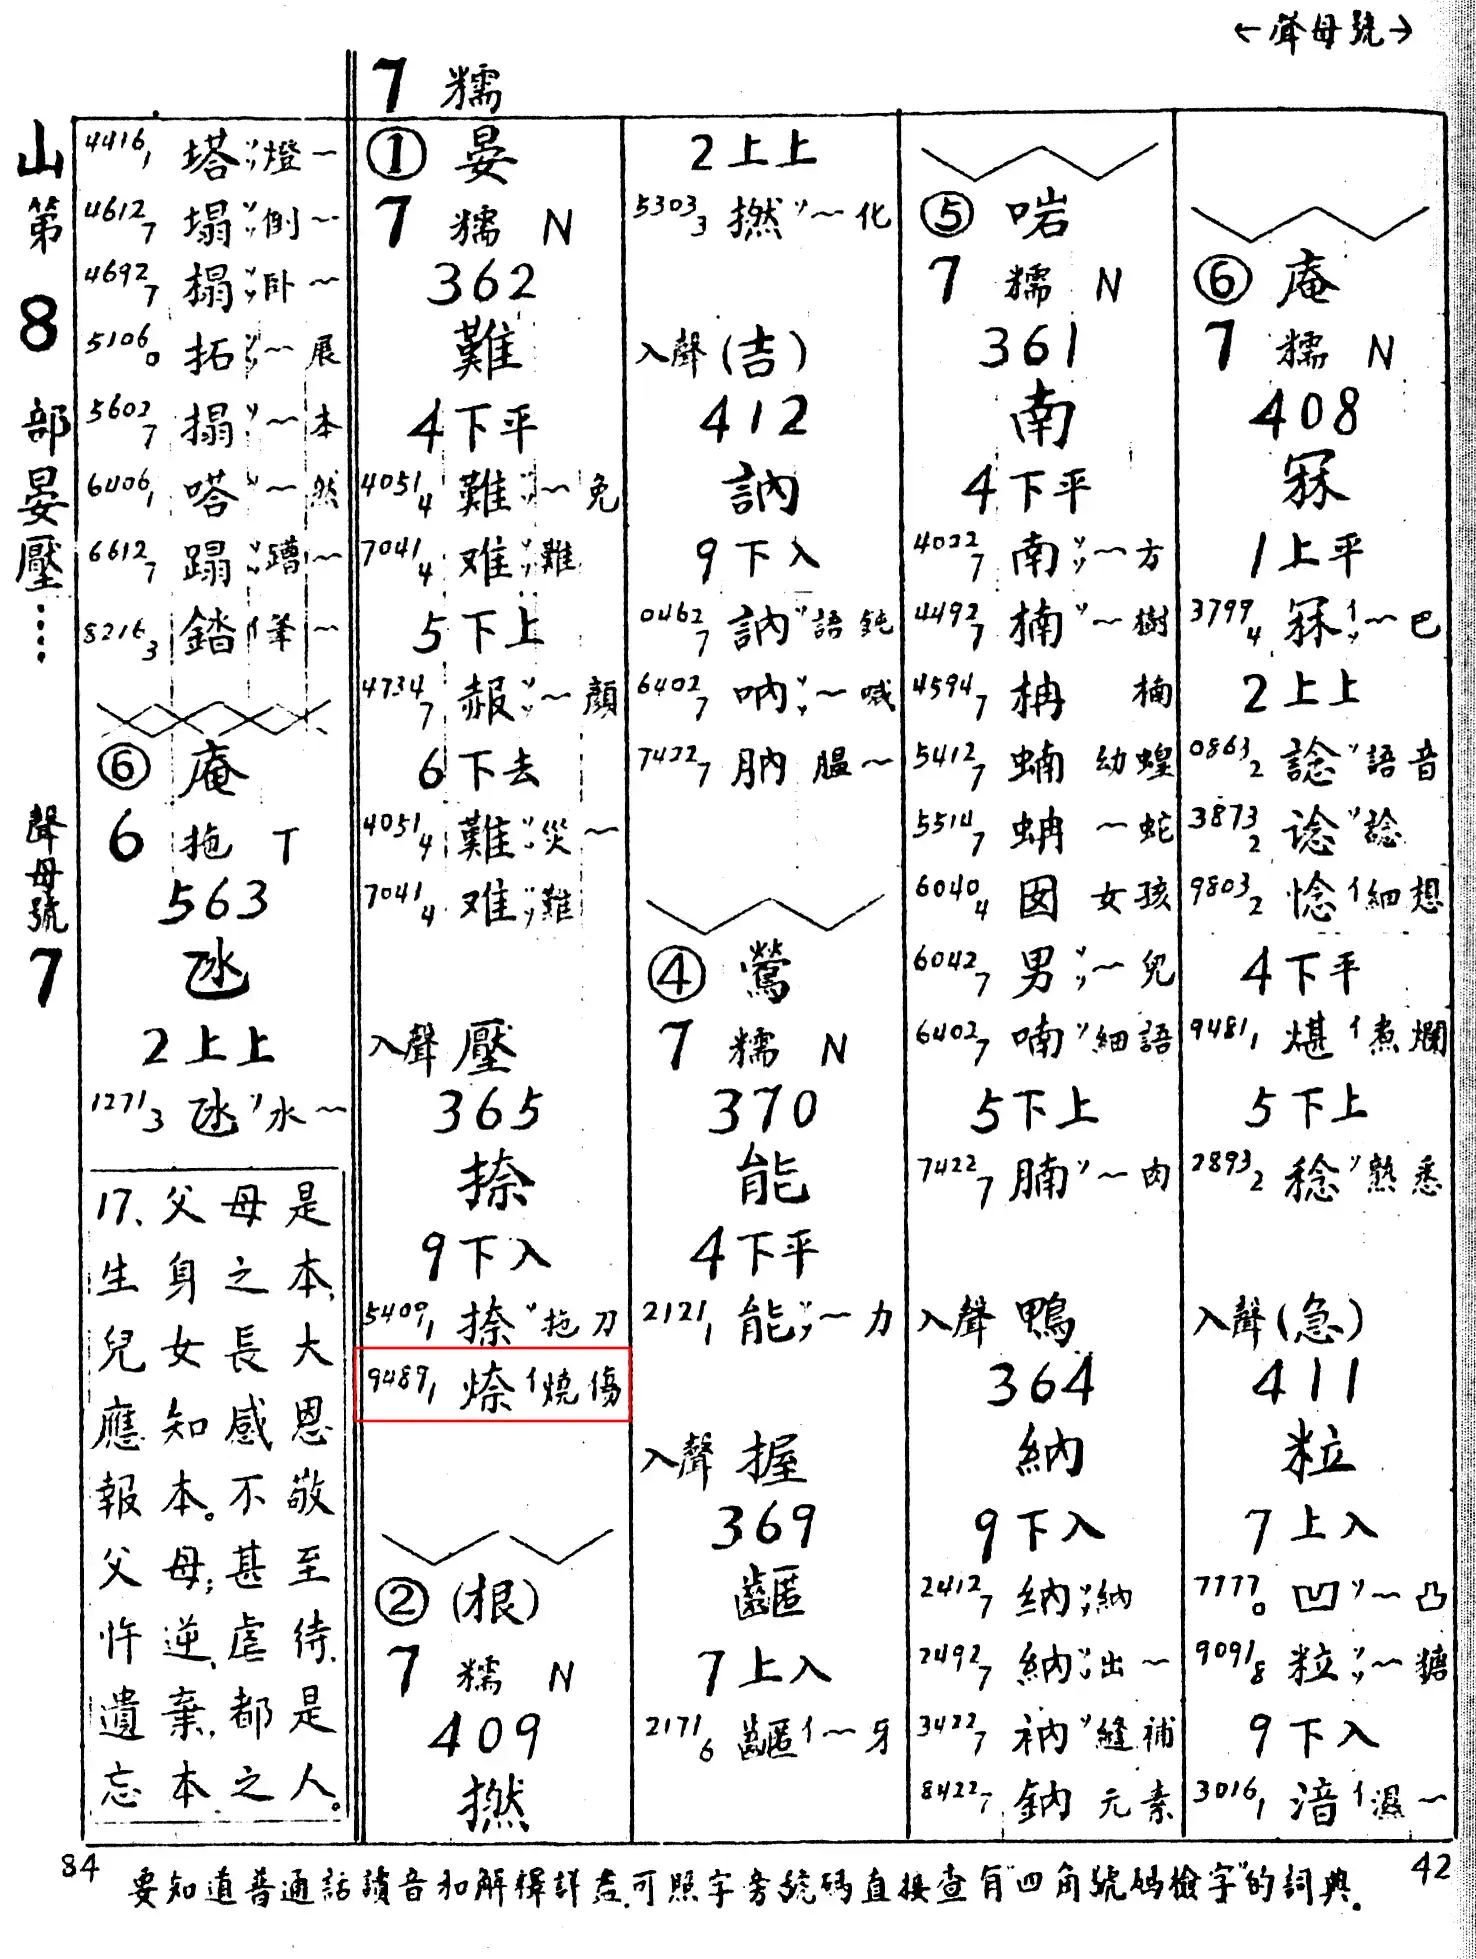 ←聲母號→
山第8部晏壓……聲母號7
4416₁ 塔 〃燈~
4612₇ 塌 〃倒~
4692₇ 榻 〃卧~
5106₀ 拓 〃~展
5602₇ 搨 〃~本
6406₁ 嗒 〃~然
6612₇ 蹋 〃蹧~
8216₃ 錔 亻筆~
⑥ 庵
6 拖 T
563
氹
2上上
1271₃ 氹 〃水~
17、父母是
生身之本,
兒女長大
應知感恩
報本。不敬
父母;甚至
忤逆、虐待、
遺棄,都是
忘本之人。
7 糯
① 晏
7 糯 N
362
難
4下平
4051₄ 難 〃~免
7041₄ 难 〃難
5下上
4734₇ 赧 〃~顏
6下去
4051₄ 難 〃災~
7041₄ 难 〃難
入聲 壓
365
捺
9下入
5409₁ 捺 〃拖刀
9489₁ 焠 亻燒傷
② (根)
7 糯 N
409
撚
2上上
5303₃ 撚 〃~化
入聲(吉)
412
訥
9下入
0462₇ 訥 〃語鈍
6402₇ 吶 〃~喊
7422₇ 肭 膃~
④ 鶯
7 糯 N
370
能
4下平
2121₁ 能 〃~力
入聲 握
369
齷
7上入
2171₆ 齷 亻~牙
⑤ 啱
7 糯 N
361
南
4下平
4022₇ 南 〃~方
4492₇ 楠 〃~樹
4594₇ 枏 楠
5412₇ 蝻 幼蝗
5514₇ 蚺 ~蛇
6040₄ 囡 女孩
6042₇ 男 〃~兒
6402₇ 喃 〃細語
5下上
7422₇ 腩 〃~肉
入聲 鴨
364
納
9下入
2412₇ 纳 〃納
2492₇ 納 〃出~
3422₇ 衲 〃縫補
8422₇ 鈉 元素
⑥ 庵
7 糯 N
408
冧
1上平
3799₄ 冧 亻~巴
2上上
0863₂ 諗 〃語音
3873₂ 谂 〃諗
9803₂ 惗 亻細想
4下平
9481₁ 煁 亻煮爛
5下上
2893₂ 稔 〃熟悉
入聲(急)
411
粒
7上入
7777₀ 凹 〃~凸
9091₈ 粒 〃~糖
9下入
3016₁ 湆 亻濕~
84
要知道普通話讀音和解釋詳盡,可照字旁號碼直接查有"四角號碼檢字"的詞典。
42